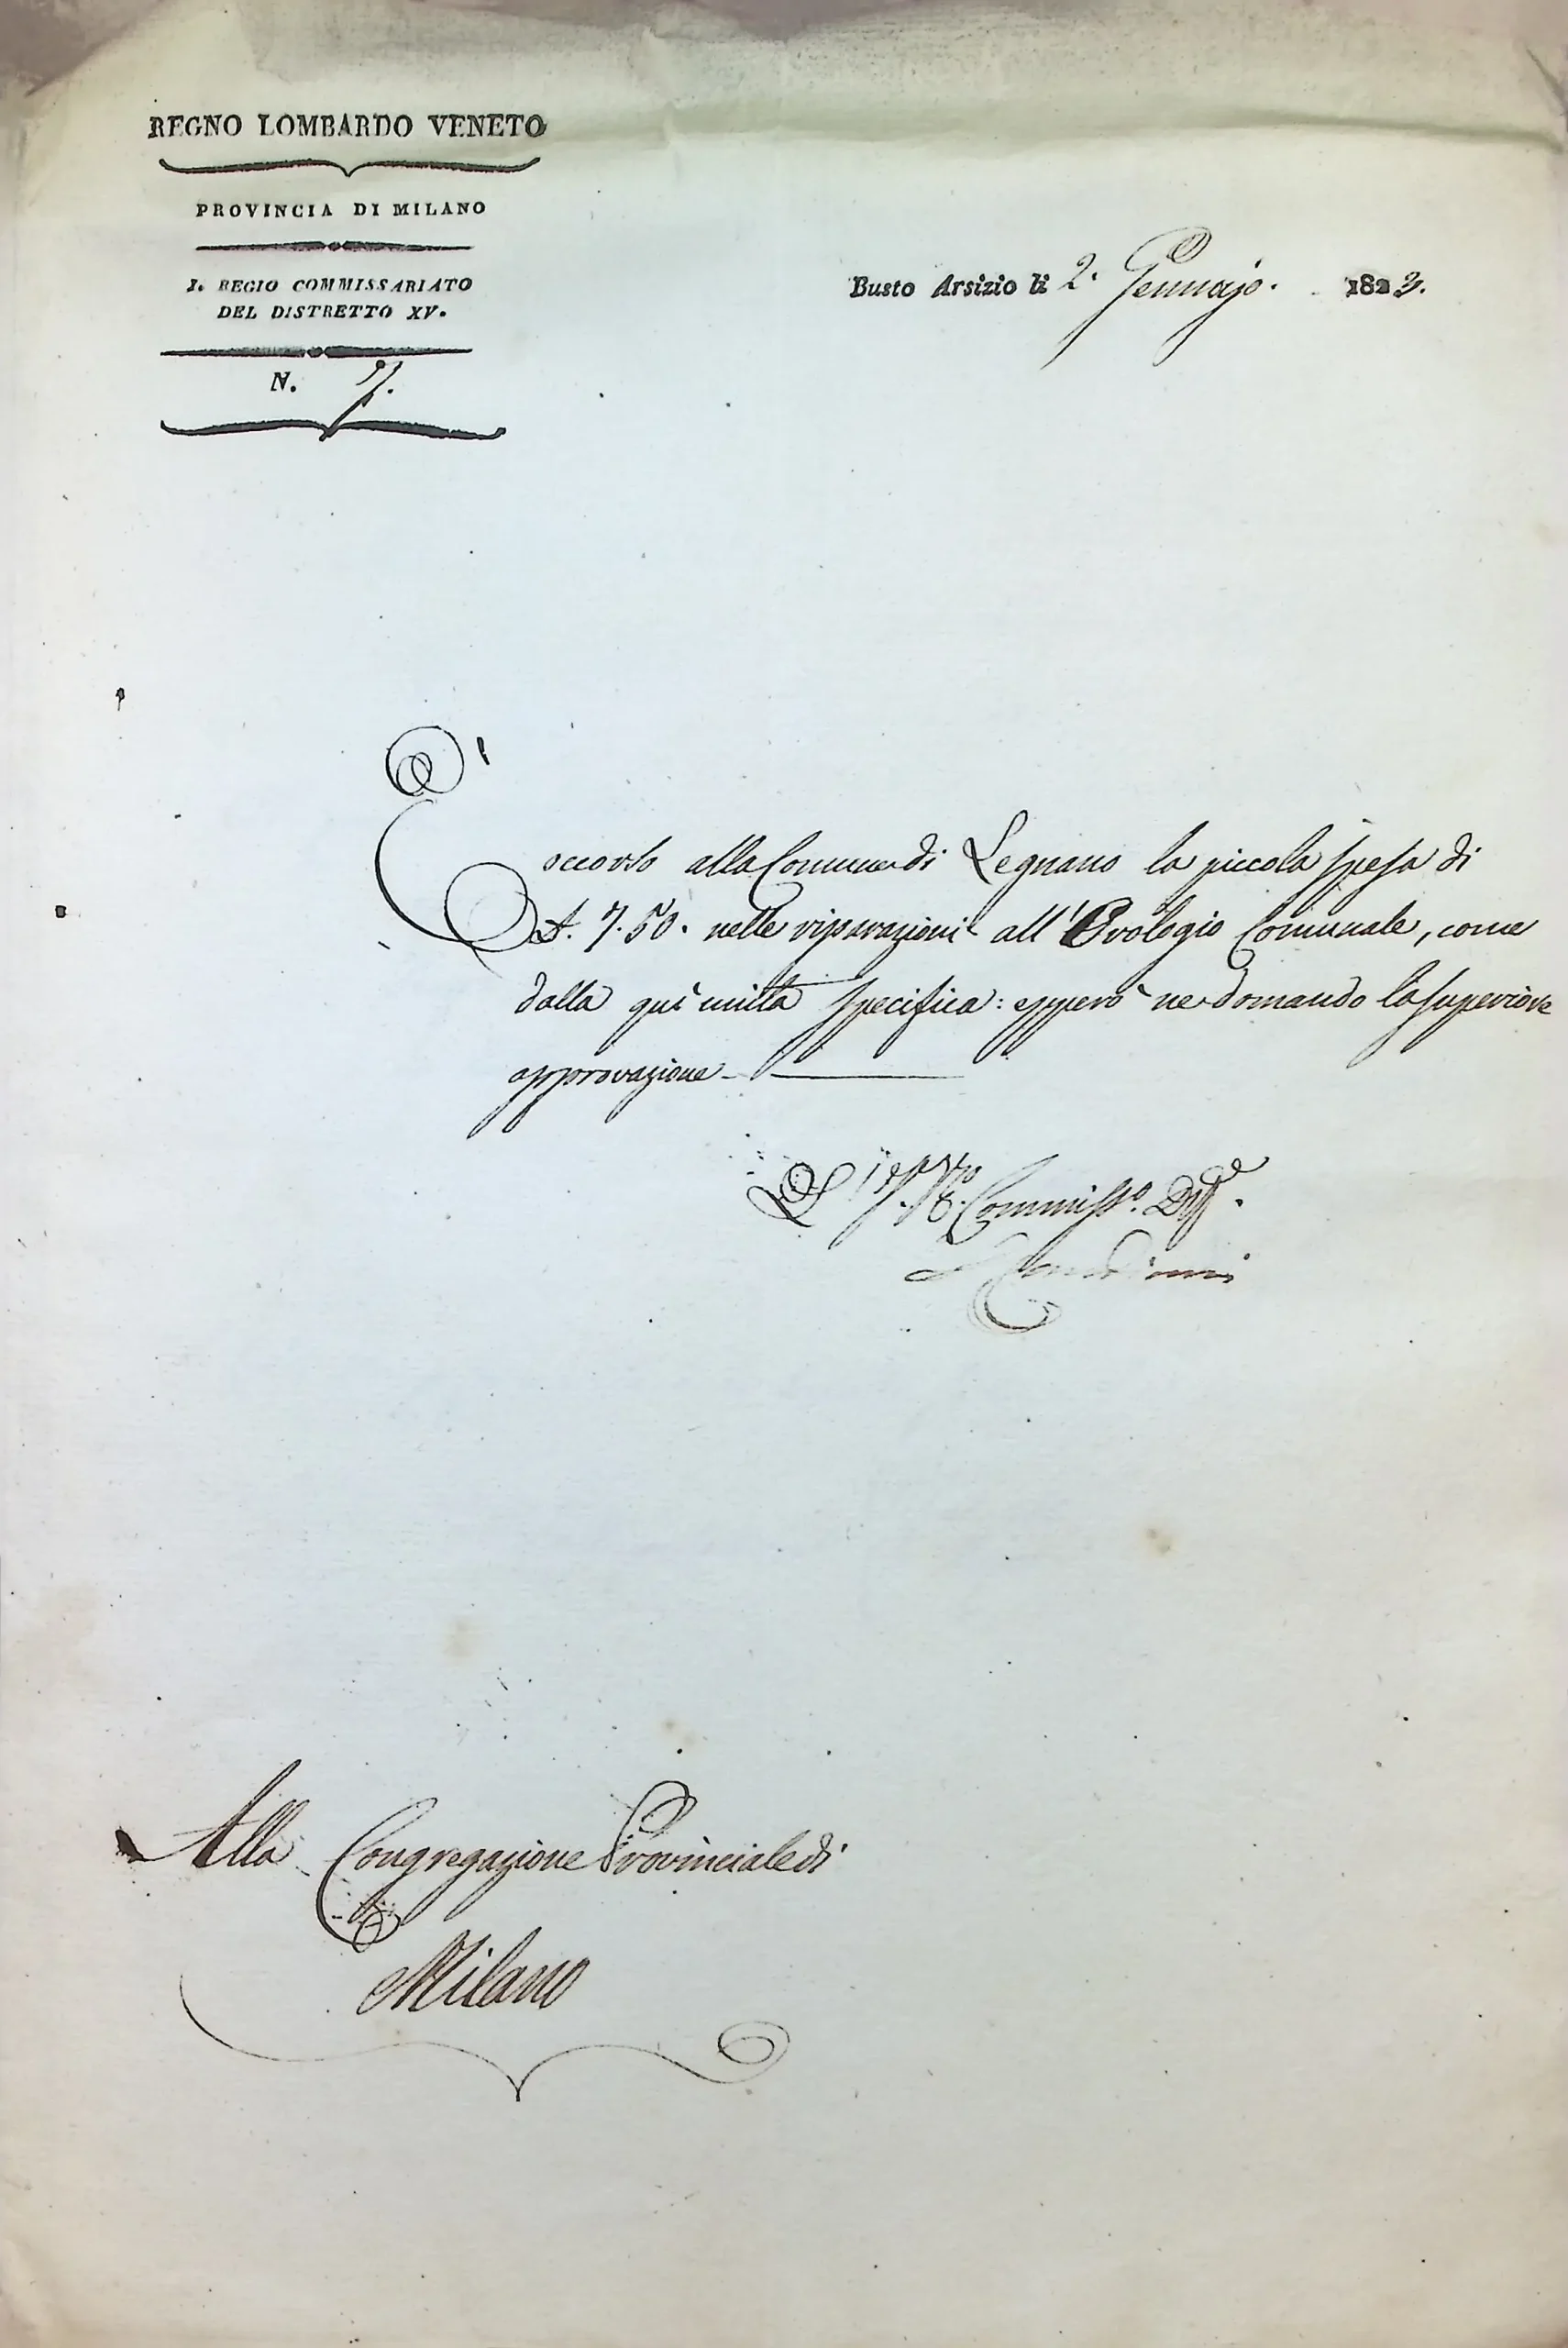 REGNO LOMBARDO VENETO
PROVINCIA DI MILANO
I. REGIO COMMISSARIATO
DEL DISTRETTO XV.
N. 7.
Busto Arsizio li 2. Gennajo. 1823.
E'
occorso alla Comune di Legnano la piccola spesa di
A. 7.50. nelle riparazioni all'Orologio Comunale, come
dalla quì unita specifica: epperò ne domando la superiore
approvazione
Commiss.o Dist.e
Alla Congregazione Provinciale di
Milano